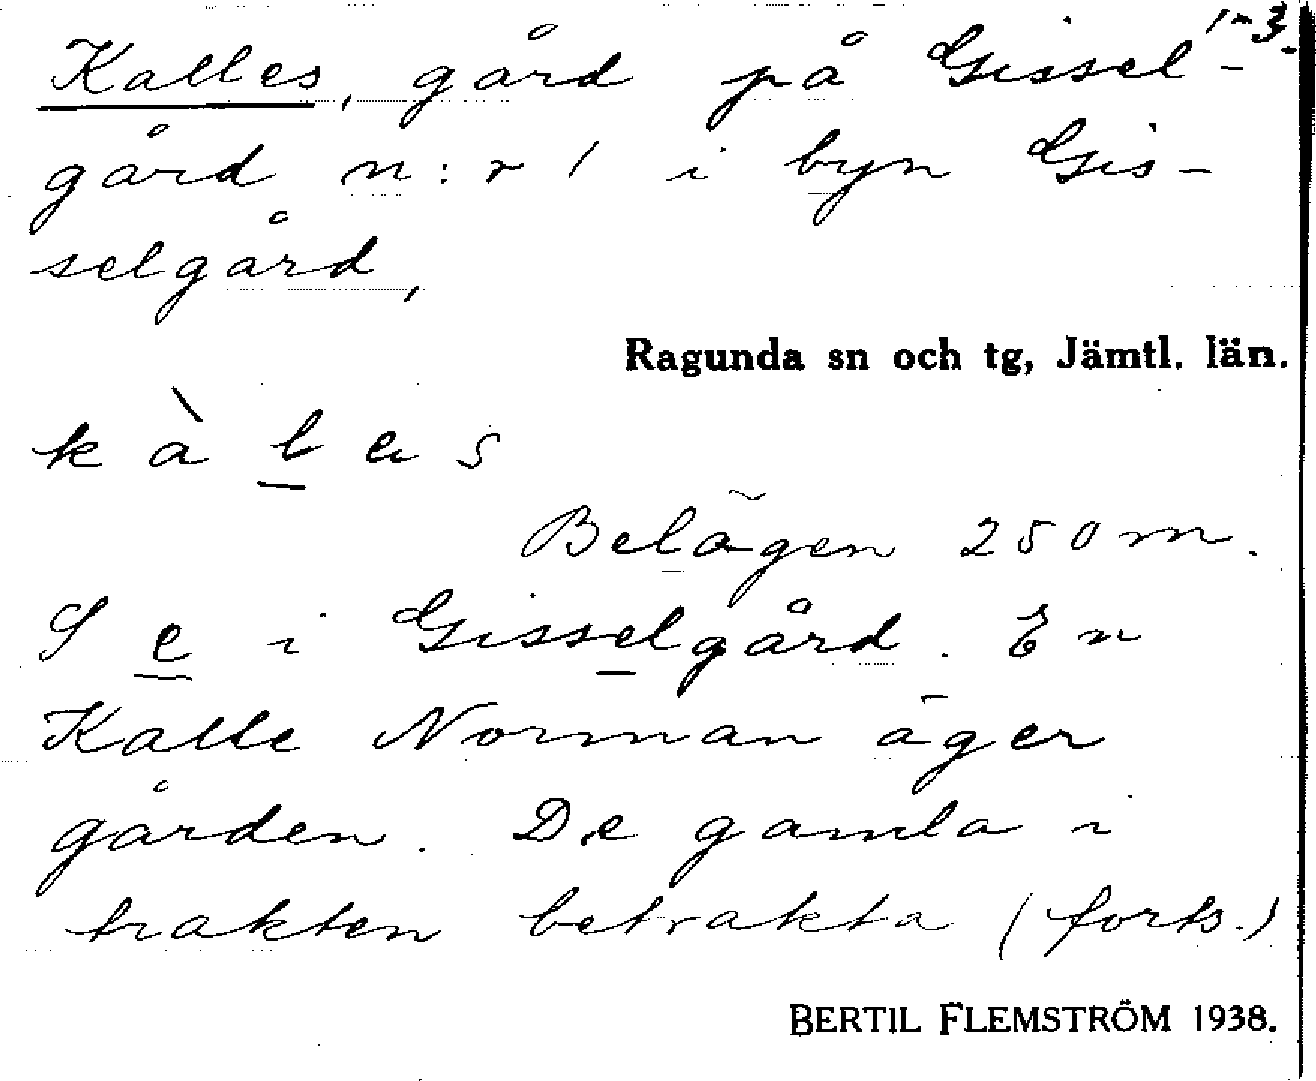 1-3.
Kalles, gård på Gissel-
gård n:r 1 i byn Gis-
selgård,
Ragunda sn och tg, Jämtl. län.
Belägen 250 m.
S e i Gisselgård. En
Kalle Norman äger
gården. De gamla i
trakten betrakta (forts.)
BERTIL FLEMSTRÖM 1938.